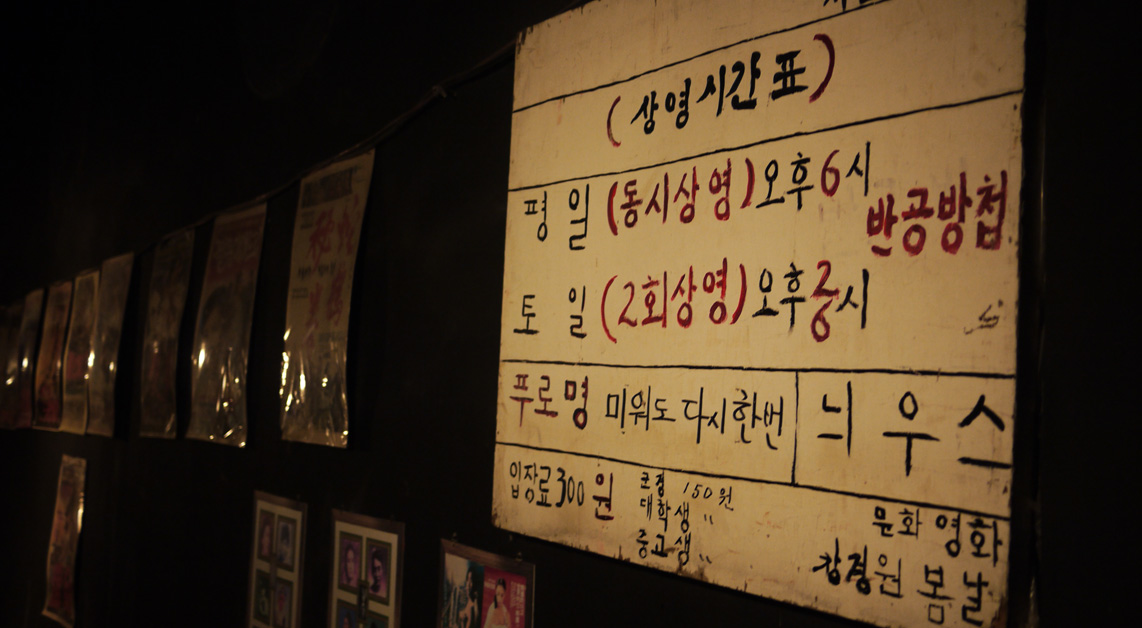 (상영시간표)
평일 (동시상영) 오후 6시
반공방첩
토일 (2회상영) 오후 중시
푸로명 미워도 다시한번
늬우스
입장료 300원
군경 150원
대학생 〃
중고생 〃
문화영화
창경원 봄날